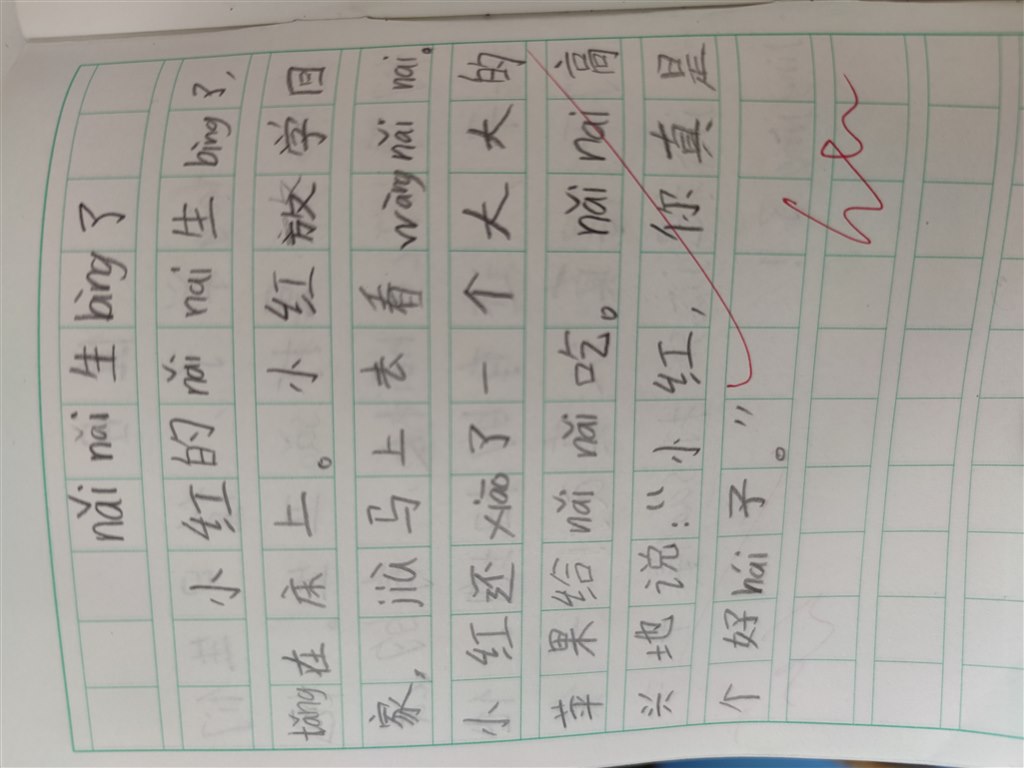 nǎi nǎi 生 bìng 了
小红的 nǎi nai 生 bìng 了，
tǎng 在床上。小红放学回
家，jiù 马上去看 wàng nǎi nai。
小红还 xiāo 了一个大大的
苹果给 nǎi nǎi 吃。nǎi nai 高
兴地说：“小红，你真是
个好 hái 子。”